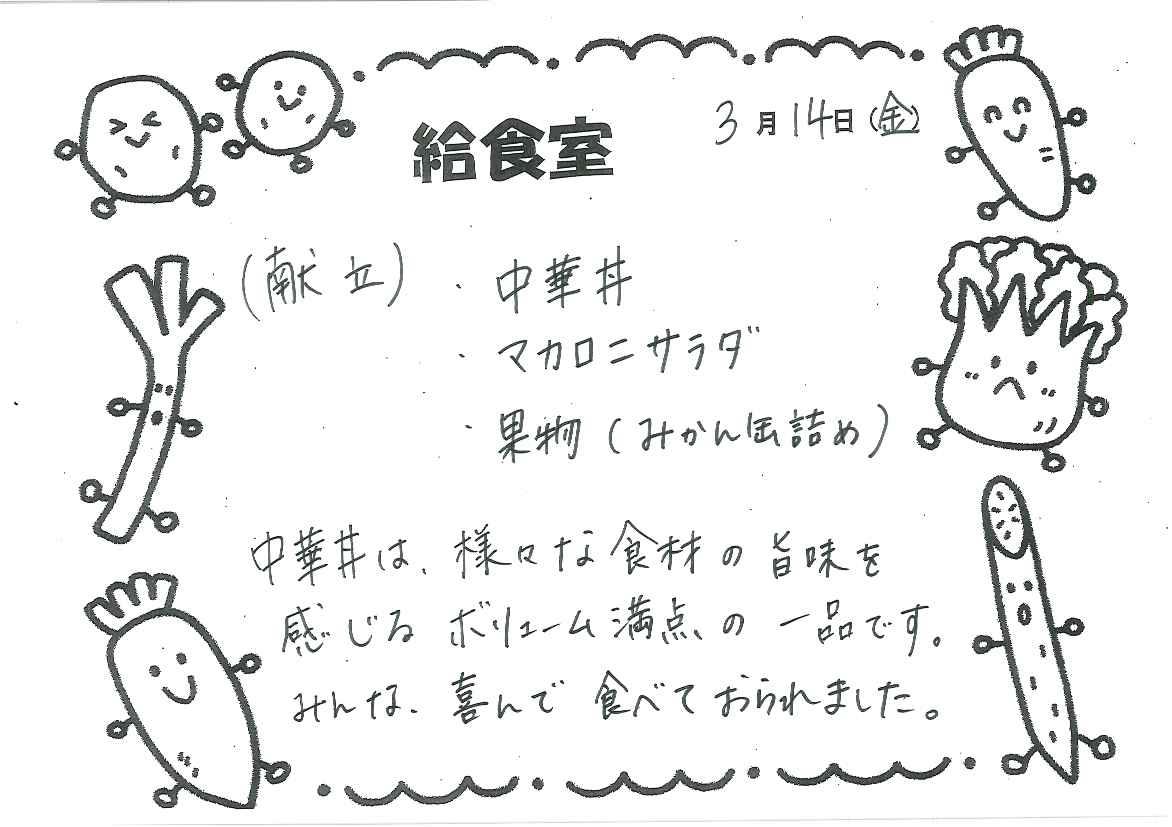 給食室
3月14日(金)
(献立)・中華丼
・マカロニサラダ
・果物(みかん缶詰め)
中華丼は、様々な食材の旨味を
感じるボリューム満点の一品です。
みんな、喜んで食べておられました。